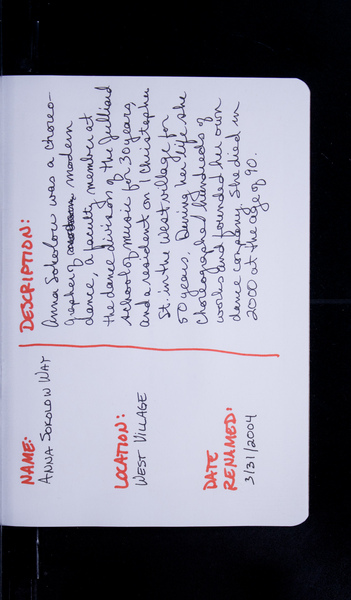 NAME:
ANNA SOKOLOW WAY
LOCATION:
WEST VILLAGE
DATE
RENAMED:
3/31/2004
DESCRIPTION:
Anna Sokolow was a choreo-
grapher of modern
dance, a faculty member at
the dance division of the Julliard
school of music for 30 years,
and a resident on 1 Christopher
St. in the West village for
50 years. During her life she
choreographed hundreds of
works and founded her own
dance company. She died in
2000 at the age of 90.